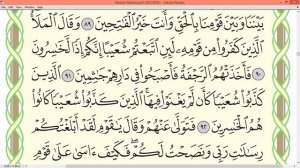 بَيْنَنَا وَبَيْنَ قَوْمِنَا بِالْحَقِّ وَأَنتَ خَيْرُ الْفَاتِحِينَ ٨٩ وَقَالَ الْمَلَأُ
الَّذِينَ كَفَرُوا مِن قَوْمِهِ لَئِنِ اتَّبَعْتُمْ شُعَيْبًا إِنَّكُمْ إِذًا لَّخَاسِرُونَ
٩٠ فَأَخَذَتْهُمُ الرَّجْفَةُ فَأَصْبَحُوا فِي دَارِهِمْ جَاثِمِينَ ٩١ الَّذِينَ
كَذَّبُوا شُعَيْبًا كَأَن لَّمْ يَغْنَوْا فِيهَا الَّذِينَ كَذَّبُوا شُعَيْبًا كَانُوا
هُمُ الْخَاسِرِينَ ٩٢ فَتَوَلَّىٰ عَنْهُمْ وَقَالَ يَا قَوْمِ لَقَدْ أَبْلَغْتُكُمْ
رِسَالَاتِ رَبِّي وَنَصَحْتُ لَكُمْ فَكَيْفَ آسَىٰ عَلَىٰ قَوْمٍ